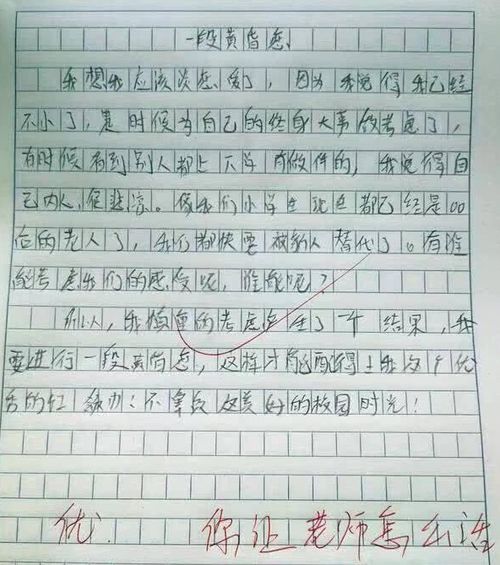 一段黄昏恋
我想我应该谈恋爱了，因为我觉得我已经
不小了，是时候为自己的终身大事做考虑了，
有时候看到别人都上下学有做伴的，我觉得自
己内人很悲凉。像我们小学生现在都已经是00
后的老人了，我们都快要被新人替代了。有谁
能考虑我们的感受呢，谁能呢？
所以，我慎重的考虑产生了一个结果，我
要进行一段黄昏恋，这样才能配得上我这个优
秀的红领巾！不辜负这美好的校园时光！
优
你让老师怎么活